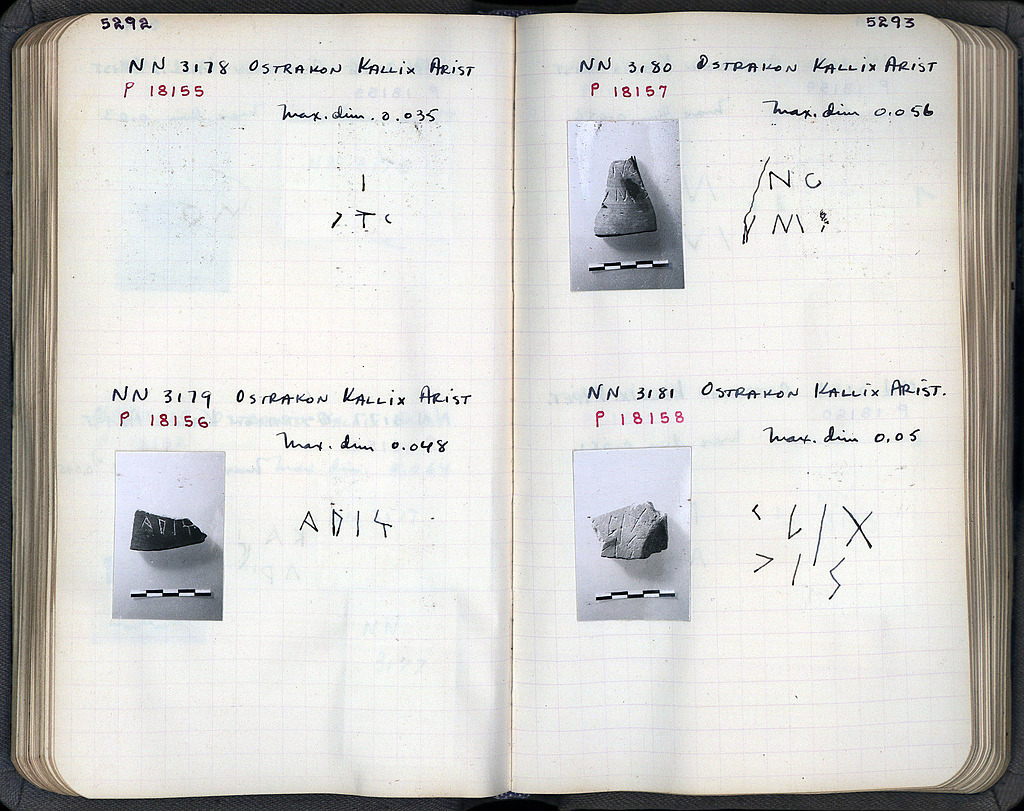 5292
NN 3178 OSTRAKON KALLIX ARIST
P 18155
Max. dim. 0.035
NN 3179 OSTRAKON KALLIX ARIST
P 18156
Max. dim 0.048
ΑΡΙϟ
5293
NN 3180 OSTRAKON KALLIX ARIST
P 18157
Max. dim 0.056
NN 3181 OSTRAKON KALLIX ARIST.
P 18158
Max. dim 0.05